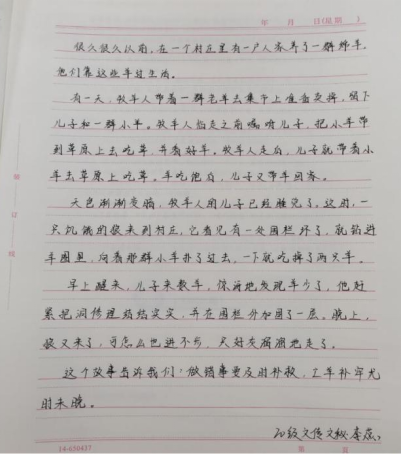 年 月 日(星期 )
很久很久以前,在一个村庄里有一户人家养了一群绵羊。
他们靠这些羊过生活。
有一天,牧羊人带着一群老羊去集市上准备卖掉,留下
儿子和一群小羊。牧羊人临走之前嘱咐儿子,把小羊带
到草原上去吃草,并看好羊。牧羊人走后,儿子就带着小
羊去草原上吃草。羊吃饱后,儿子又带羊回家。
天色渐渐变暗,牧羊人的儿子已经睡觉了。这时,一
只饥饿的狼来到村庄,它看见有一处围栏坏了,就钻进
羊圈里,向着那群小羊扑了过去,一下就吃掉了两只羊。
早上醒来,儿子来数羊,惊讶地发现羊少了,他赶
紧把洞修理结结实实,并在围栏外加固了一层。晚上,
狼又来了,可怎么也进不去,只好灰溜溜地走了。
这个故事告诉我们:做错事要及时补救,亡羊补牢尤
时未晚。
级文传文秘 李蕊
14-650437
装
订
线